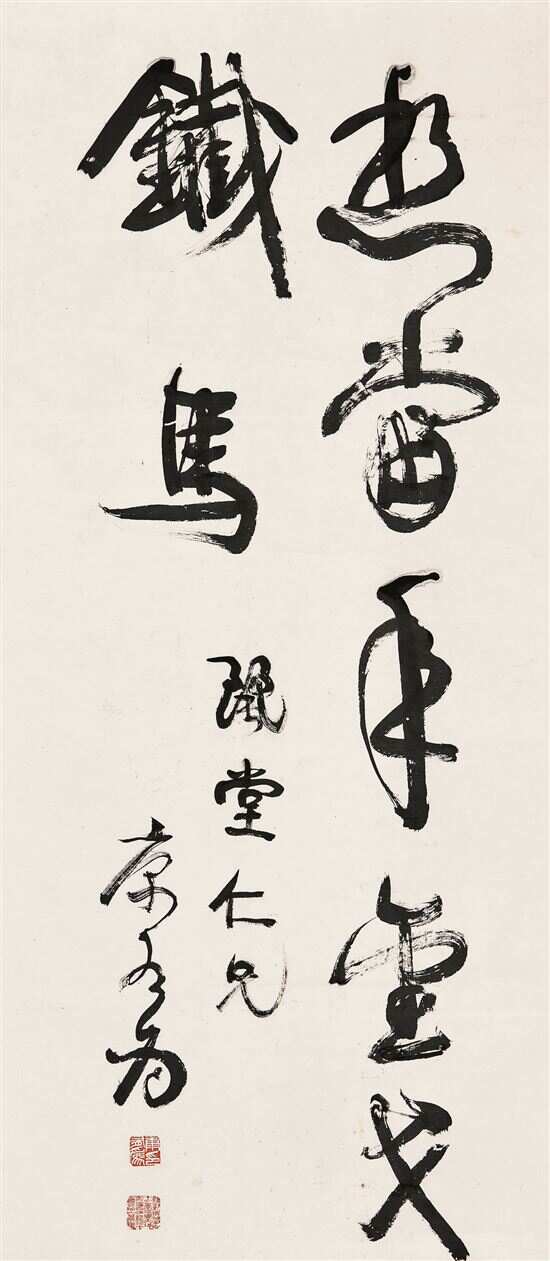 想當年金戈
鐵馬
堂仁兄
康有為